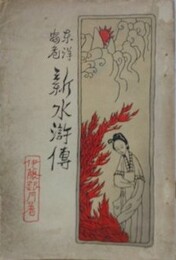 東洋
新水滸傳
伊藤銀月著